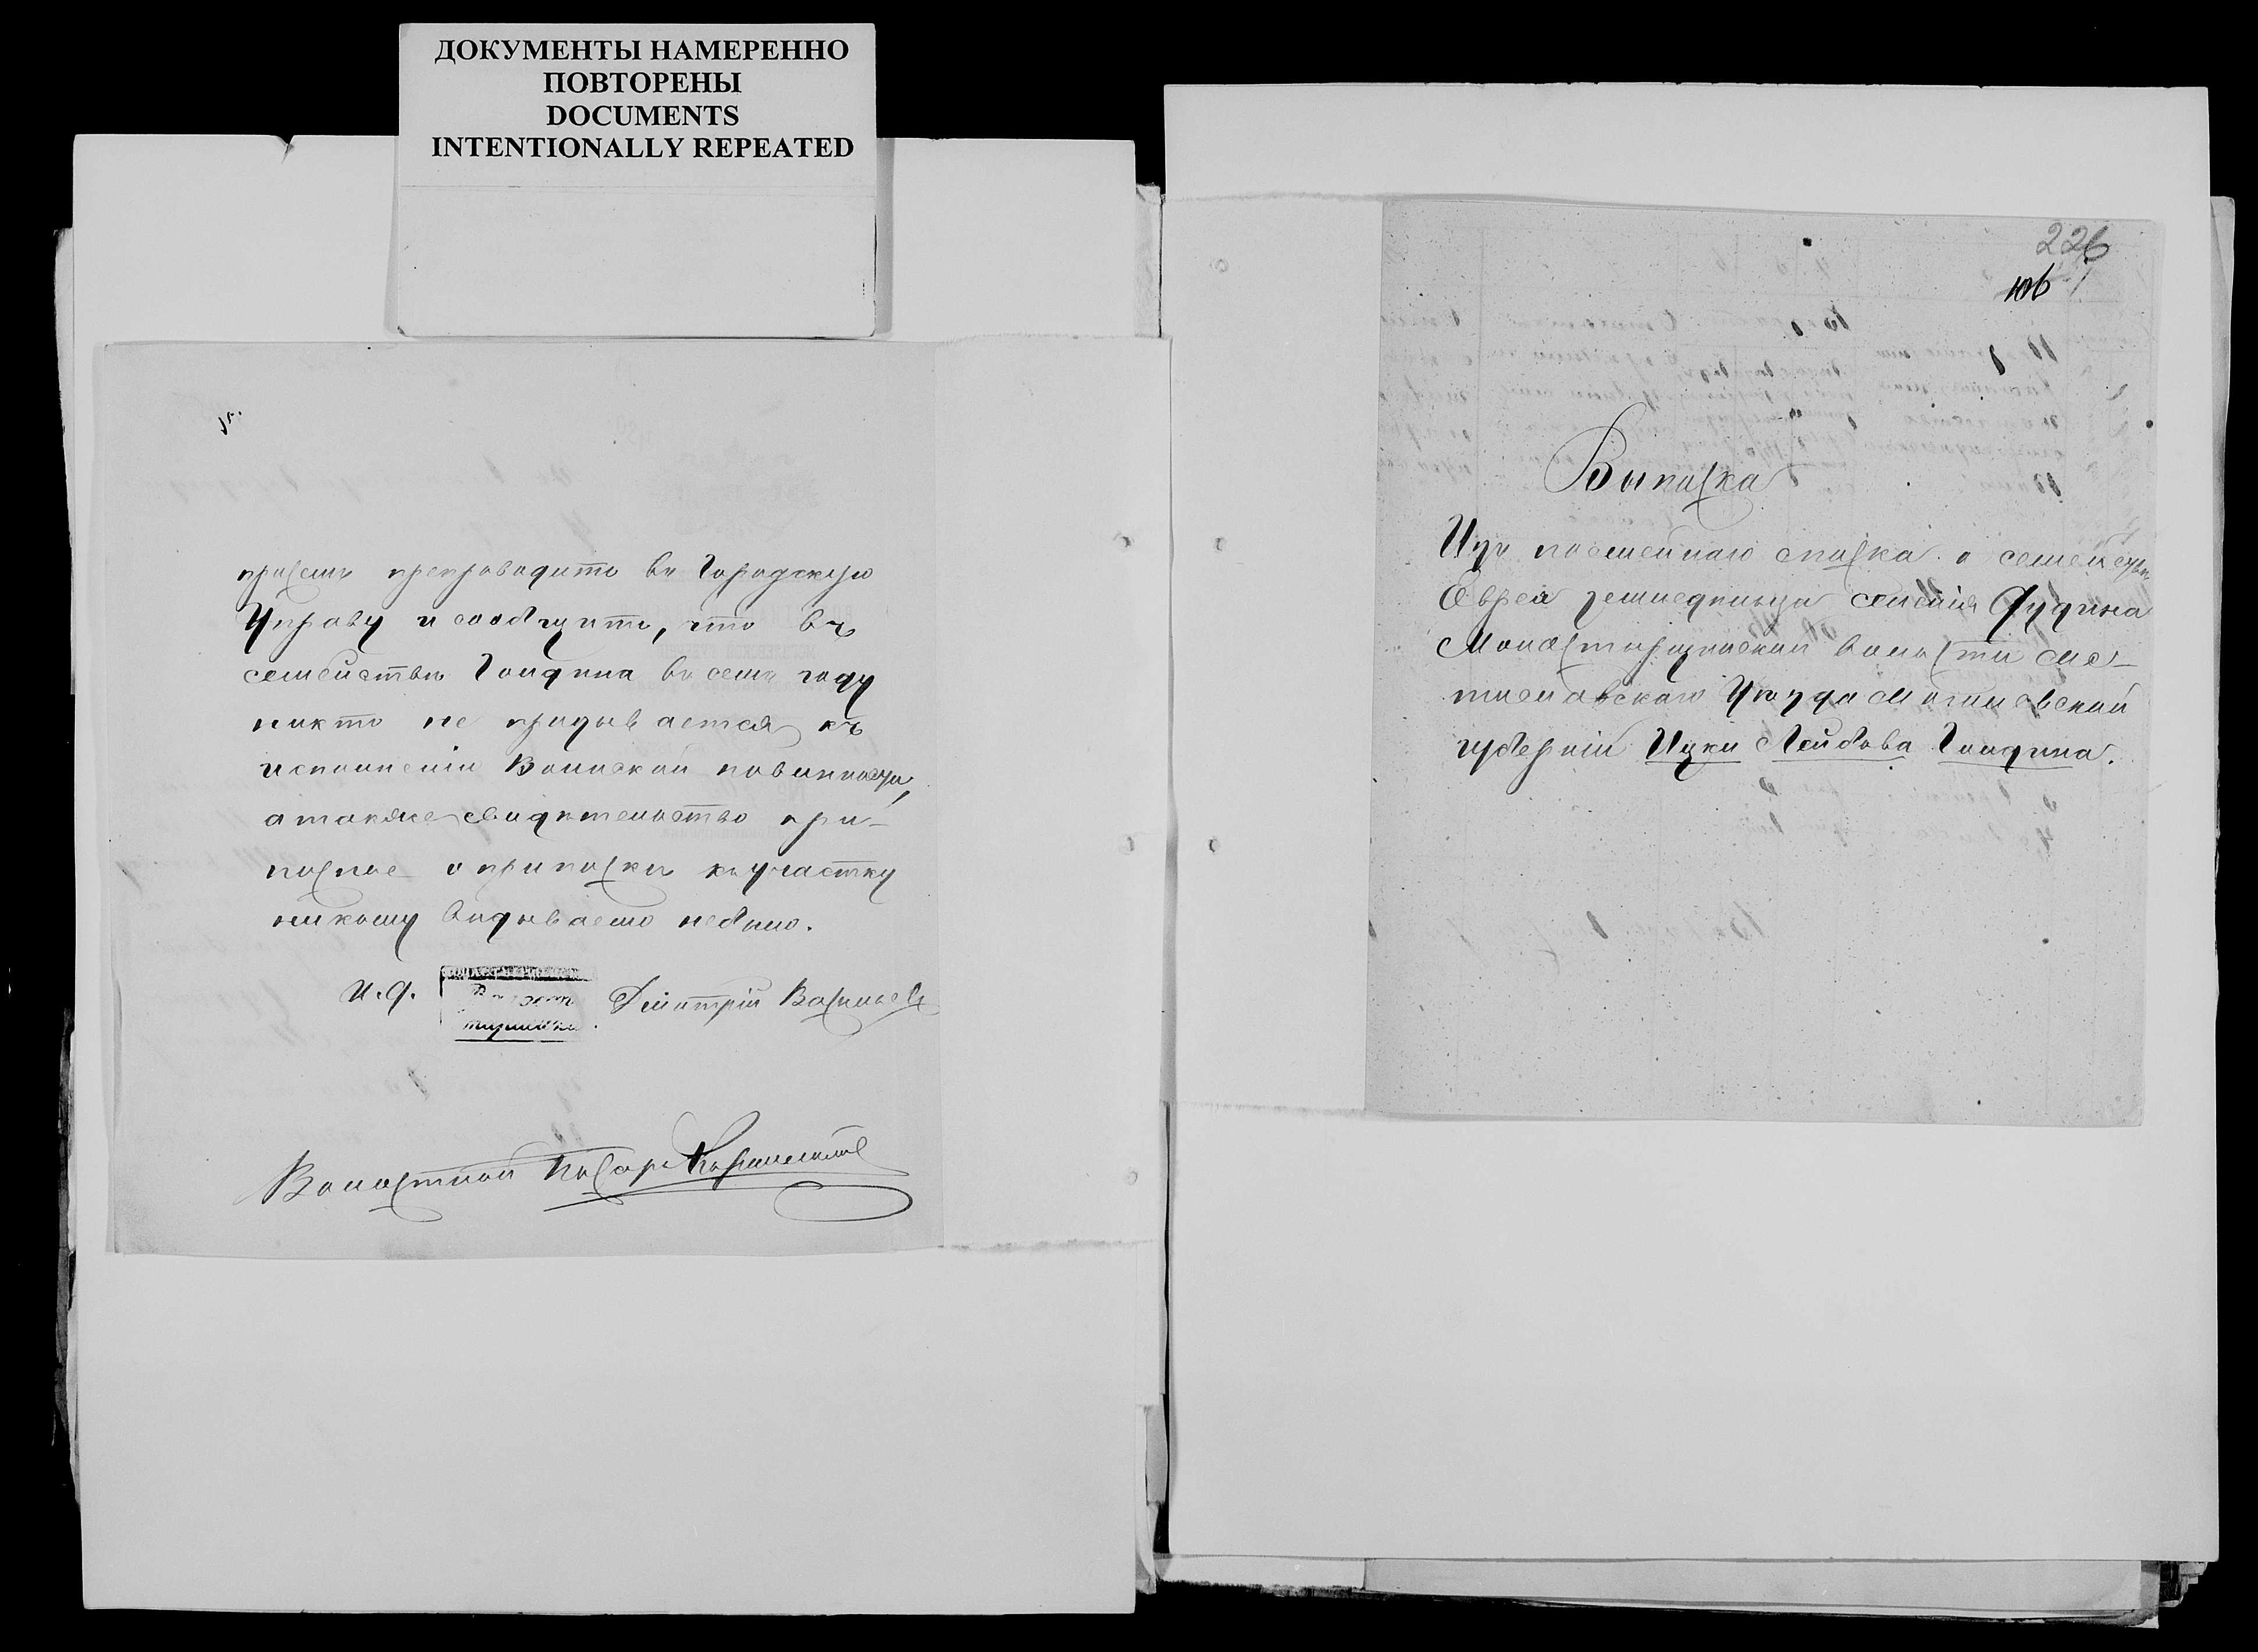 ДОКУМЕНТЫ НАМЕРЕННО
ПОВТОРЕНЫ
DOCUMENTS
INTENTIONALLY REPEATED
присемъ препроводить въ Городскую
Управу и сообщить, что въ
семействѣ Гондина въ семъ году
никто не призывается къ
исполненію Воинской повинности,
а также свидѣтельство при-
писное о припискѣ къ участку
никому выдываемо небыло.
И.д.
Волостн
старшины Дмитрій Васильевъ
Волостной Писарь
226
106
Выписка
Изъ посемейнаго списка о семействѣ
Еврея земледѣльца селенія Дудина
Монастырщинской волости Мс-
тиславскаго Уѣзда Могилевской
губерніи Ицки Лейбова Гондина.